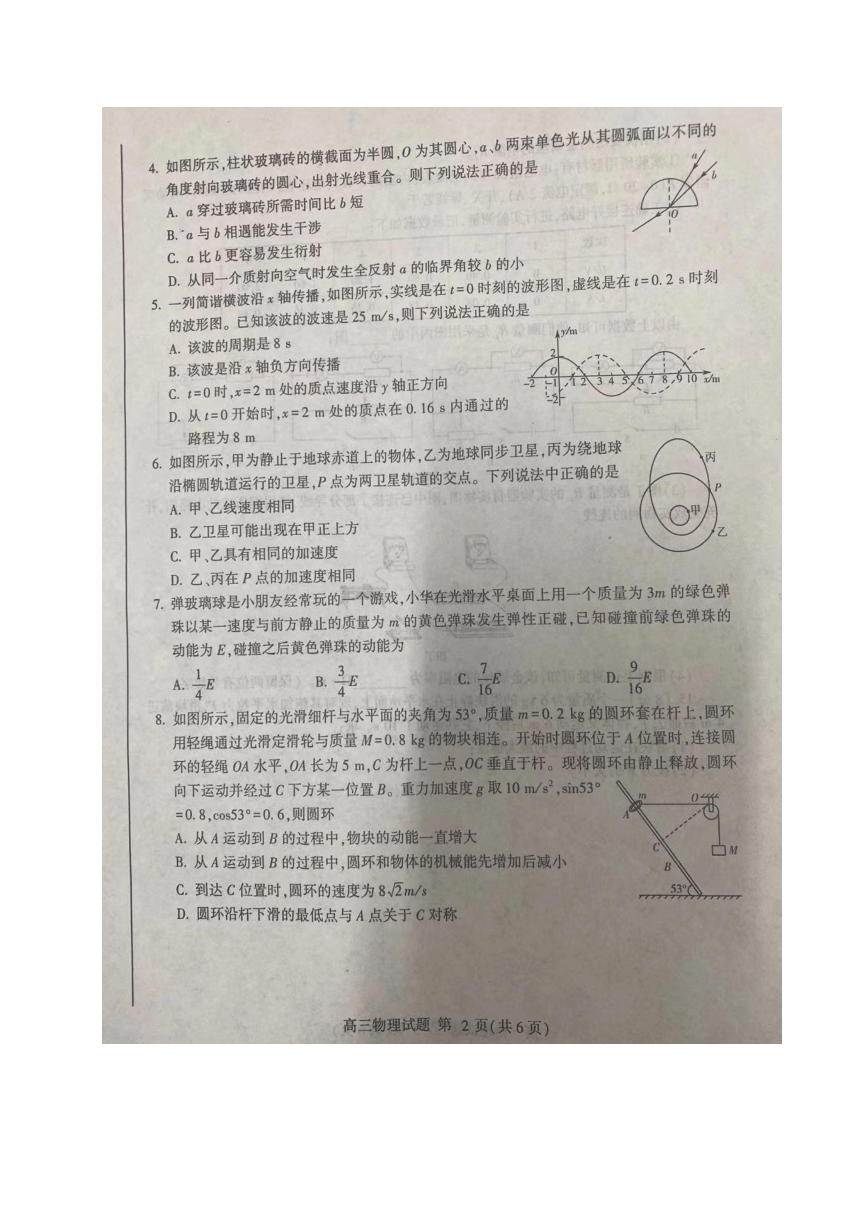 4. 如图所示,柱状玻璃砖的横截面为半圆,O 为其圆心,a、b 两束单色光从其圆弧面以不同的
角度射向玻璃砖的圆心,出射光线重合。则下列说法正确的是
A. a 穿过玻璃砖所需时间比 b 短
B. a 与 b 相遇能发生干涉
C. a 比 b 更容易发生衍射
D. 从同一介质射向空气时发生全反射 a 的临界角较 b 的小
a
b
O
5. 一列简谐横波沿 x 轴传播,如图所示,实线是在 t=0 时刻的波形图,虚线是在 t=0.2 s 时刻
的波形图。已知该波的波速是 25 m/s,则下列说法正确的是
A. 该波的周期是 8 s
B. 该波是沿 x 轴负方向传播
C. t=0 时,x=2 m 处的质点速度沿 y 轴正方向
D. 从 t=0 开始时,x=2 m 处的质点在 0.16 s 内通过的
路程为 8 m
y/m
2
0
-2 -1 1 2 3 4 5 6 7 8 9 10 x/m
-2
6. 如图所示,甲为静止于地球赤道上的物体,乙为地球同步卫星,丙为绕地球
沿椭圆轨道运行的卫星,P 点为两卫星轨道的交点。下列说法中正确的是
A. 甲、乙线速度相同
B. 乙卫星可能出现在甲正上方
C. 甲、乙具有相同的加速度
D. 乙、丙在 P 点的加速度相同
丙
P
甲
乙
7. 弹玻璃球是小朋友经常玩的一个游戏,小华在光滑水平桌面上用一个质量为 3m 的绿色弹
珠以某一速度与前方静止的质量为 m 的黄色弹珠发生弹性正碰,已知碰撞前绿色弹珠的
动能为 E,碰撞之后黄色弹珠的动能为
A. 1/4 E B. 3/4 E C. 7/16 E D. 9/16 E
8. 如图所示,固定的光滑细杆与水平面的夹角为 53°,质量 m=0.2 kg 的圆环套在杆上,圆环
用轻绳通过光滑定滑轮与质量 M=0.8 kg 的物块相连。开始时圆环位于 A 位置时,连接圆
环的轻绳 OA 水平,OA 长为 5 m,C 为杆上一点,OC 垂直于杆。现将圆环由静止释放,圆环
向下运动并经过 C 下方某一位置 B。重力加速度 g 取 10 m/s²,sin53°
=0.8,cos53°=0.6,则圆环
A. 从 A 运动到 B 的过程中,物块的动能一直增大
B. 从 A 运动到 B 的过程中,圆环和物体的机械能先增加后减小
C. 到达 C 位置时,圆环的速度为 8√2 m/s
D. 圆环沿杆下滑的最低点与 A 点关于 C 对称
m
O
A
C
M
B
53°
高三物理试题 第 2 页(共 6 页)